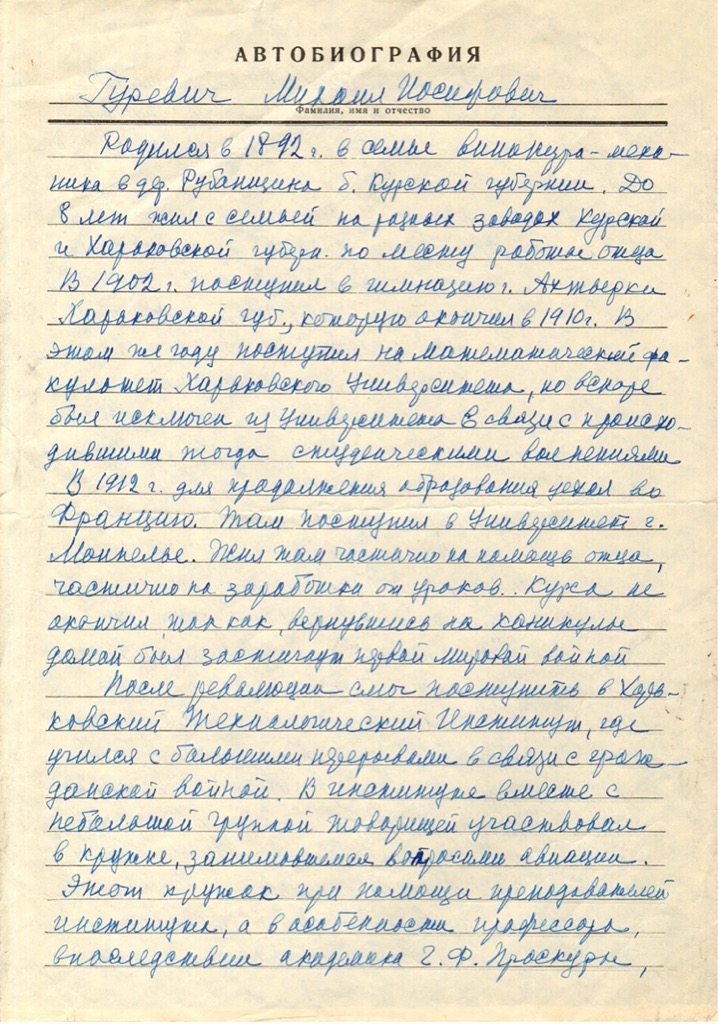 АВТОБИОГРАФИЯ
Гуревич Михаил Иосифович
Фамилия, имя и отчество
Родился в 1892 г. в семье винокура-меха-
ника в дер. Рубанщина б. Курской губернии. До
8 лет жил с семьей на разных заводах Курской
и Харьковской губерн. по месту работы отца
В 1902 г. поступил в гимназию г. Ахтырки
Харьковской губ., которую окончил в 1910 г. В
этом же году поступил на математический фа-
культет Харьковского Университета, но вскоре
был исключен из Университета в связи с происхо-
дившими тогда студенческими волнениями
В 1912 г. для продолжения образования уехал во
Францию. Там поступил в Университет г.
Монпелье. Жил там частично на помощь отца,
частично на заработки от уроков.. Курса не
окончил, так как, вернувшись на каникулы
домой был застигнут первой мировой войной
После революции смог поступить в Харь-
ковский Технологический Институт, где
учился с большими перерывами в связи с граж-
данской войной. В институте вместе с
небольшой группой товарищей участвовал
в кружке, занимавшемся вопросами авиации.
Этот кружок при помощи преподавателей
института, а в особенности профессора,
впоследствии академика Г. Ф. Проскуры,